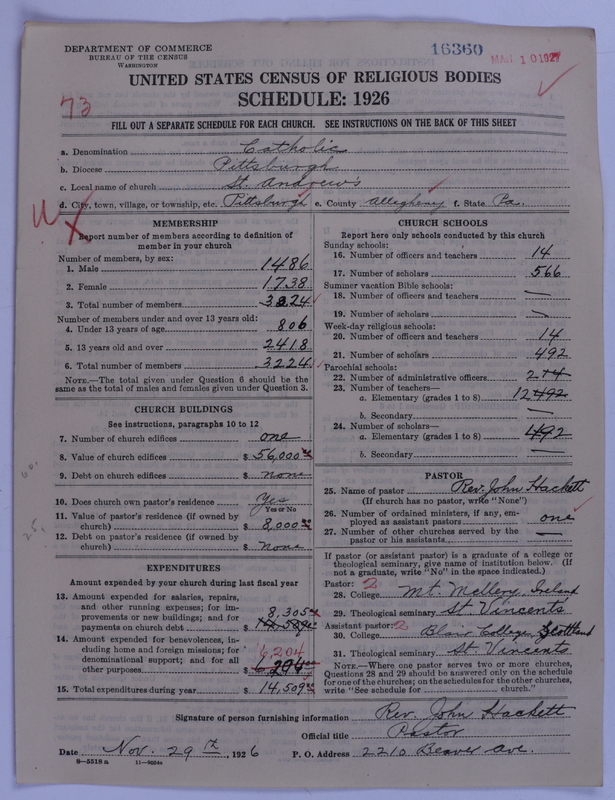 DEPARTMENT OF COMMERCE
BUREAU OF THE CENSUS
WASHINGTON
16360
MAR 10 1927
UNITED STATES CENSUS OF RELIGIOUS BODIES
SCHEDULE: 1926
73
FILL OUT A SEPARATE SCHEDULE FOR EACH CHURCH. SEE INSTRUCTIONS ON THE BACK OF THIS SHEET
a. Denomination Catholic
b. Diocese Pittsburgh
c. Local name of church St. Andrew's
d. City, town, village, or township, etc. Pittsburgh e. County Allegheny f. State Pa.
MEMBERSHIP
Report number of members according to definition of
member in your church
Number of members, by sex:
1. Male 1486
2. Female 1738
3. Total number of members 3224
Number of members under and over 13 years old:
4. Under 13 years of age 806
5. 13 years old and over 2418
6. Total number of members 3224
NOTE.—The total given under Question 6 should be
the same as the total of males and females given under Question 3.
CHURCH BUILDINGS
See instructions, paragraphs 10 to 12
7. Number of church edifices one
8. Value of church edifices $ 56,000.00
9. Debt on church edifices $ none
10. Does church own pastor's residence Yes
Yes or No
11. Value of pastor's residence (if owned by
church) $ 8,000.00
12. Debt on pastor's residence (if owned by
church) $ None
EXPENDITURES
Amount expended by your church during last fiscal year
13. Amount expended for salaries, repairs,
and other running expenses; for im-
provements or new buildings; and for
payments on church debt $ 8,305
14. Amount expended for benevolences, in-
cluding home and foreign missions; for
denominational support; and for all
other purposes $ 6,204
15. Total expenditures during year $ 14,509.00
CHURCH SCHOOLS
Report here only schools conducted by this church
Sunday schools:
16. Number of officers and teachers 14
17. Number of scholars 566
Summer vacation Bible schools:
18. Number of officers and teachers —
19. Number of scholars —
Week-day religious schools:
20. Number of officers and teachers 14
21. Number of scholars 492
Parochial schools:
22. Number of administrative officers 2
23. Number of teachers—
a. Elementary (grades 1 to 8) 12
b. Secondary —
24. Number of scholars—
a. Elementary (grades 1 to 8) 492
b. Secondary —
PASTOR
25. Name of pastor Rev. John Hackett
(If church has no pastor, write "None")
26. Number of ordained ministers, if any, em-
ployed as assistant pastors one
27. Number of other churches served by the
pastor or his assistants —
If pastor (or assistant pastor) is a graduate of a college or
theological seminary, give name of institution below. (If
not a graduate, write "No" in the space indicated.)
Pastor: 2
28. College Mt. Mellery, Ireland
29. Theological seminary St Vincents
Assistant pastor: 2
30. College Blair College, Scotland
31. Theological seminary St. Vincents
NOTE.—Where one pastor serves two or more churches,
Questions 28 and 29 should be answered only on the schedule
for one of the churches; on the schedules for the other churches,
write "See schedule for church."
Signature of person furnishing information Rev. John Hackett
Official title Pastor
Date Nov. 29th, 1926 P. O. Address 2210 Beaver Ave.
8—5518a